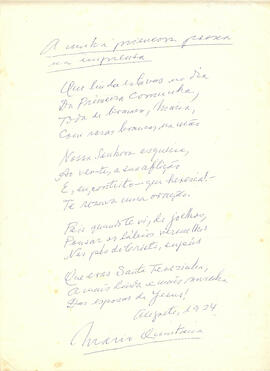 A minha primeira poesia
na imprensa
Que linda estavas no dia
Da Primeira Comunhão,
Toda de branco, Maria,
Com rosas brancas na mão
Nossa Senhora esquecia,
Ao ver-te, a sua aflição
E, contrito — que heresia! —
Te rezava uma oração.
Pois quando te vi, de joelhos,
Pousar os lábios vermelhos
Nos pés do Cristo,
Que eras Santa Terezinha,
A mais linda e mais
Das esposas de Jesus!
Alegrete, 1924
Mario Quintana